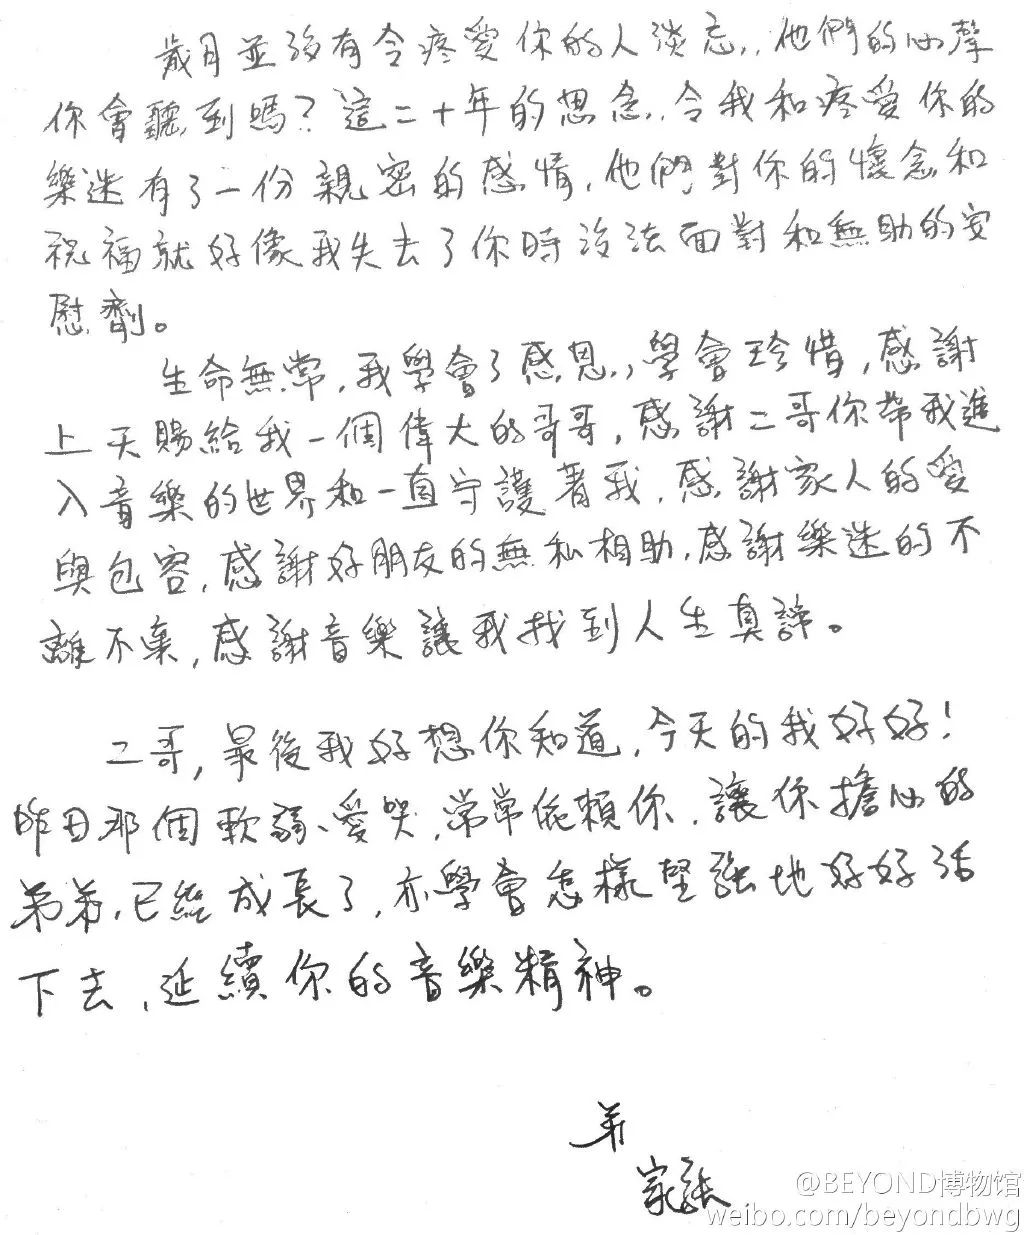 歲月並沒有令疼愛你的人淡忘，他們的心聲
你會聽到嗎？這二十年的思念，令我和疼愛你的
樂迷有了一份親密的感情，他們對你的懷念和
祝福就好像我失去了你時沒法面對和無助的安
慰劑。
生命無常，我學會了感恩，學會珍惜，感謝
上天賜給我一個偉大的哥哥，感謝二哥你帶我進
入音樂的世界和一直守護著我，感謝家人的愛
與包容，感謝好朋友的無私相助，感謝樂迷的不
離不棄，感謝音樂讓我找到人生真諦。
二哥，最後我好想你知道，今天的我好好！
昨日那個軟弱、愛哭，常常依賴你，讓你擔心的
弟弟，已經成長了，亦學會怎樣堅強地好好活
下去，延續你的音樂精神。
弟
家強
@BEYOND博物馆
weibo.com/beyondbwg